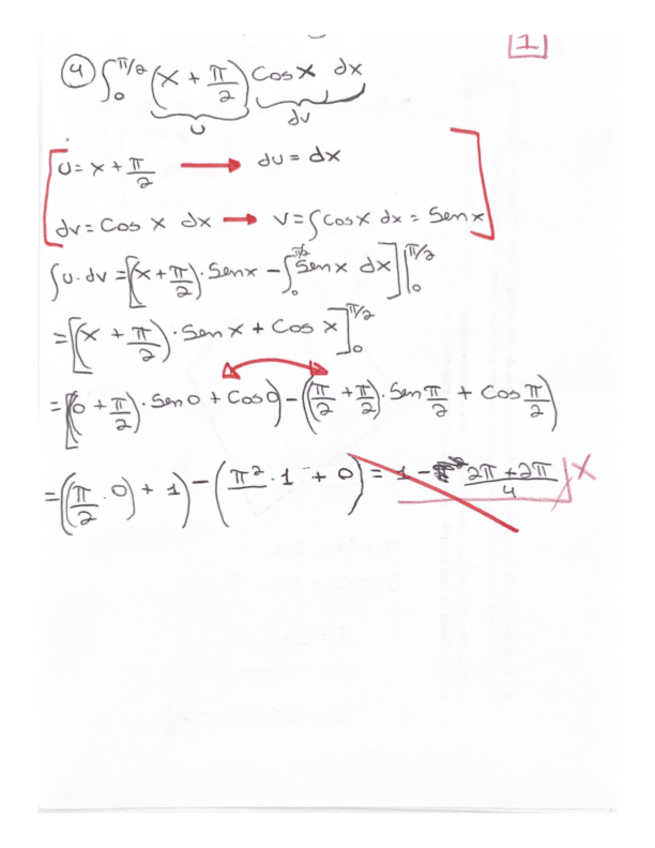 1
4) ∫₀^π/2 (x + π/2) Cos x dx
u dv
u = x + π/2 → du = dx
dv = Cos x dx → v = ∫cos x dx = Sen x
∫u·dv = [(x + π/2)·Sen x − ∫₀^π/2 Sen x dx]|₀^π/2
= [(x + π/2)·Sen x + Cos x]₀^π/2
= [(0 + π/2)·Sen 0 + Cos 0) − (π/2 + π/2)·Sen π/2 + Cos π/2)
= ((π/2·0) + 1) − (π²·1 + 0) = 1 − (2π + 2π)/4 X